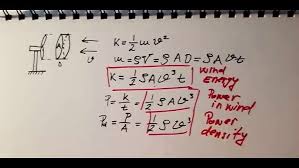 K = 1/2 m v²
m = ρV = ρAD = ρAvt
K = 1/2 ρAv³t
wind
Energy
P = K/t = 1/2 ρAv³
Power
in wind
Pₐ = P/A = 1/2 ρv³
Power
density
v
D